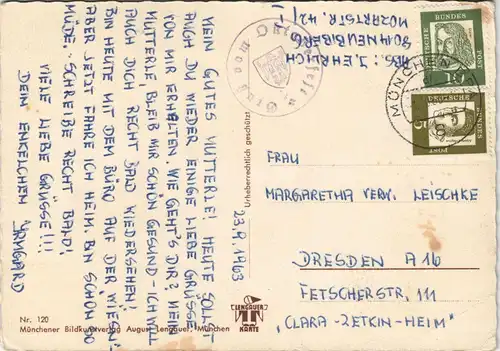 MEIN GUTES MUTTERLE! HEUTE SOLLST
AUCH DU WIEDER EINIGE LIEBE GRÜSSE
VON MIR ERHALTEN. WIE GEHT'S DIR? MEIN
MUTTERLE, BLEIB MIR SCHÖN GESUND - ICH WILL
AUCH DICH RECHT BALD WIEDERSEHEN!
BIN HEUTE MIT DEM BÜRO AUF DER "WIES'N",
ABER JETZT FAHRE ICH HEIM. BIN SCHON SO
MÜDE. - SCHREIBE RECHT BALD!
VIELE LIEBE GRÜSSE !!!
DEIN ENKELCHEN IRMGARD
23.9.1963
ABS: J. EHRLICH
8014 NEUBIBERG
MOZARTSTR. 42/-
Gruß vom Oktoberfest
DEUTSCHE BUNDESPOST
10
DEUTSCHE BUNDESPOST
5
MÜNCHEN
Urheberrechtlich geschützt
FRAU
MARGARETHA VERW. LEISCHKE
DRESDEN A 16
FETSCHERSTR. 111
"CLARA-ZETKIN-HEIM"
LENGAUER
KARTE
Nr. 120
Münchener Bildkunstverlag August Lengauer, München